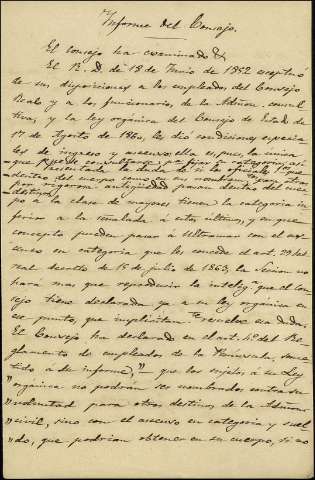 Informe del Consejo.
El Consejo ha examinado &
El R. D. de 18 de Junio de 1852 exceptuó
de sus disposiciones a los empleados del Consejo
Real y a los funcionarios de la Admon. consul
tiva, y la ley orgánica del Consejo de Estado de
17 de Agosto de 1860, les dió condiciones especia
les de ingreso y ascenso,
que puede consultarse para fijar la categoría; así
presentada la duda de si los oficiales 1os que
dentro del cuerpo como en su nombran
por rigorosa antigüedad pasan dentro del cuer
po a la clase de mayores tienen la categoría in
ferior a la señalada a estos últimos, y en que
concepto pueden pasar á Ultramar con el as
censo en categoria que les concede el art. 29 del
real decreto de 15 de julio de 1863, la Seccion no
hará mas que reproducir la inteligª que el Con
sejo tiene declarada ya a su ley orgánica en
este punto, que implicitamte resuelve esa duda.
El Consejo ha declarado en el art. 4º del Re
glamento de empleados de la Peninsula, some
tido á su informe, "que los sujetos á su Ley
"orgánica no podrán ser nombrados contra su
"voluntad para otros destinos de la Admon
"civil, sino con el ascenso en categoria y suel
"do, que podrian obtener en su cuerpo, si no